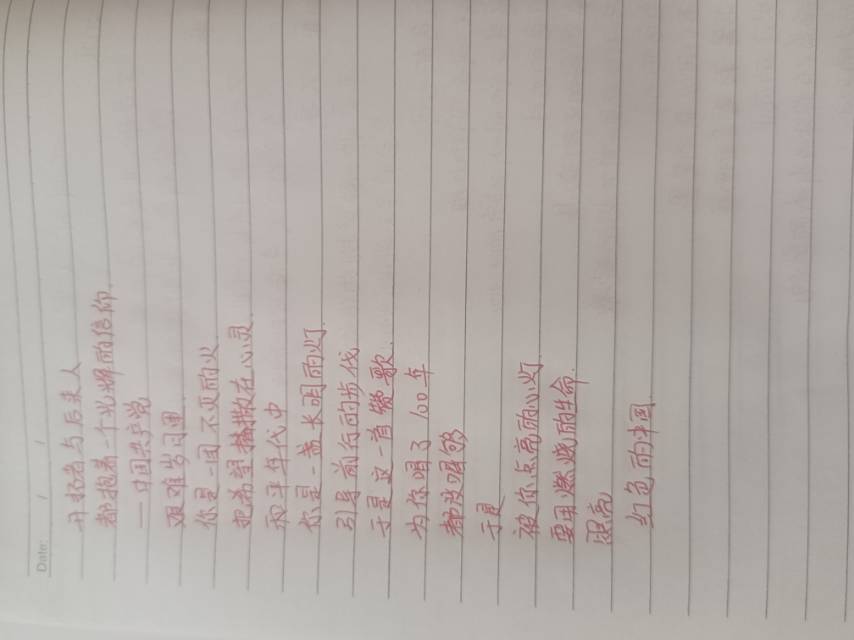 Date: / /
开拓者与后来人
都抱着一个光辉的信仰
—中国共产党
艰难岁月里
你是一团不灭的火
把希望播撒在心灵
和平年代中
你是一盏长明的灯
引导前行的步伐
于是这一首赞歌
为你唱了100年
都没唱够
于是
被你点亮的心灯
要用燃烧的生命
照亮
红色的中国